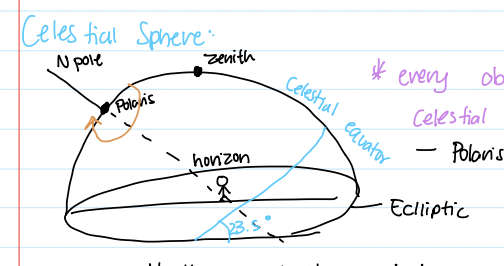 Celestial Sphere:
N pole
zenith
Polaris
* every ob
Celestial
— Polaris
Celestial equator
horizon
Ecliptic
23.5°